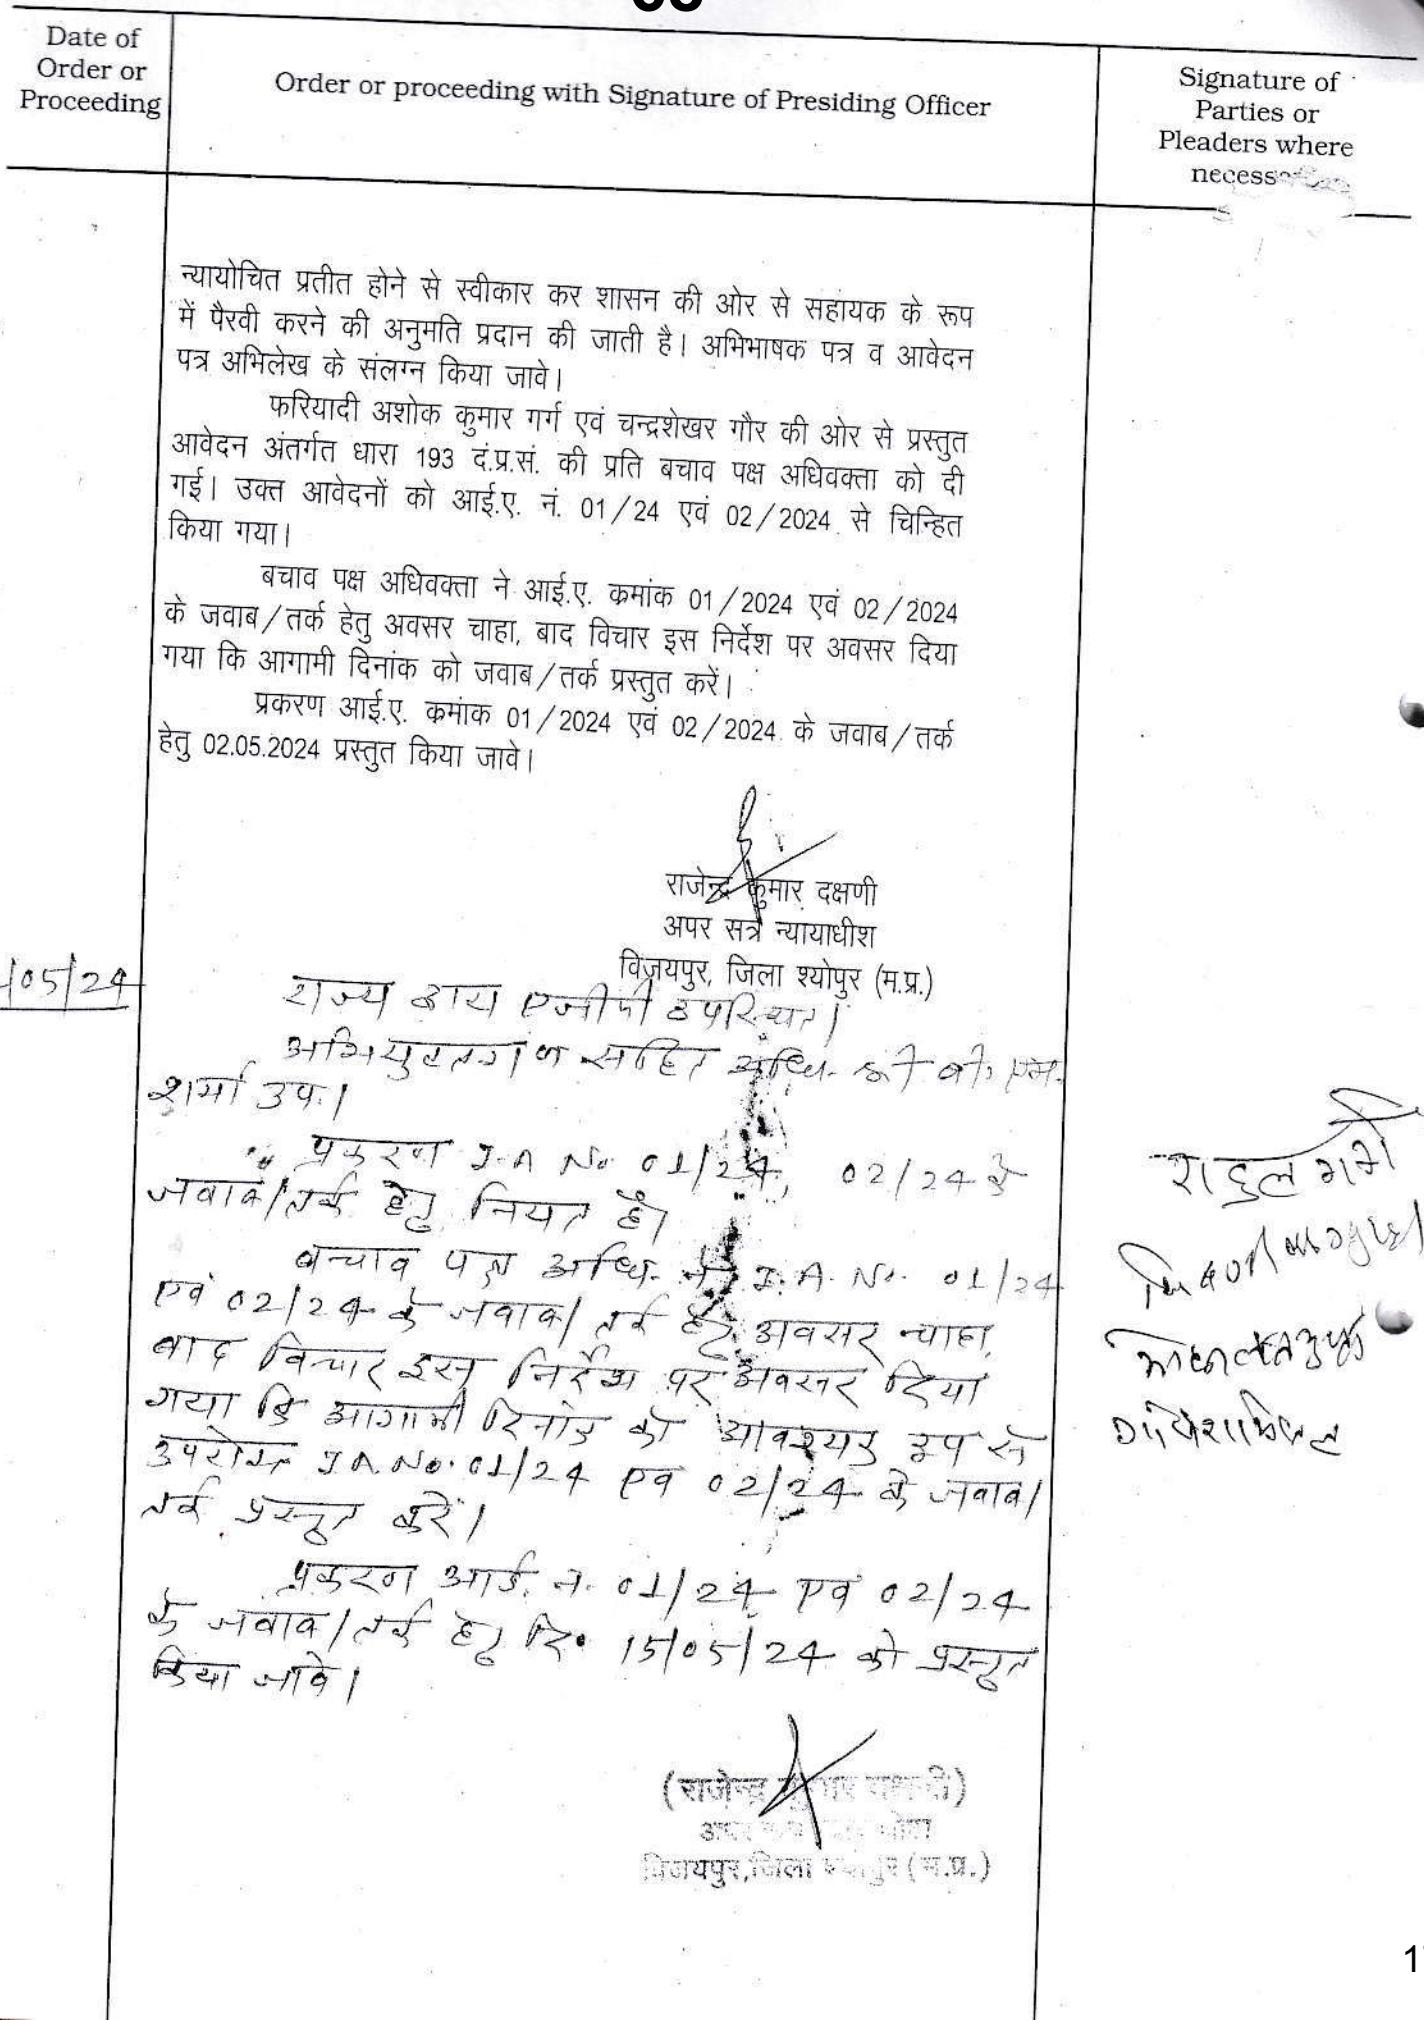 Date of
Order or
Proceeding
Order or proceeding with Signature of Presiding Officer
Signature of
Parties or
Pleaders where
न्यायोचित प्रतीत होने से स्वीकार कर शासन की ओर से सहायक के रूप
में पैरवी करने की अनुमति प्रदान की जाती है। अभिभाषक पत्र व आवेदन
पत्र अभिलेख के संलग्न किया जावे।
फरियादी अशोक कुमार गर्ग एवं चन्द्रशेखर गौर की ओर से प्रस्तुत
आवेदन अंतर्गत धारा 193 दं.प्र.सं. की प्रति बचाव पक्ष अधिवक्ता को दी
गई। उक्त आवेदनों को आई.ए. नं. 01/24 एवं 02/2024 से चिन्हित
किया गया।
बचाव पक्ष अधिवक्ता ने आई.ए. क्रमांक 01/2024 एवं 02/2024
के जवाब/तर्क हेतु अवसर चाहा, बाद विचार इस निर्देश पर अवसर दिया
गया कि आगामी दिनांक को जवाब/तर्क प्रस्तुत करें।
प्रकरण आई.ए. क्रमांक 01/2024 एवं 02/2024 के जवाब/तर्क
हेतु 02.05.2024 प्रस्तुत किया जावे।
राजेन्द्र कुमार दक्षणी
अपर सत्र न्यायाधीश
विजयपुर, जिला श्योपुर (म.प्र.)
/05/24
राज्य द्वारा एजीपी उपस्थित।
अभियुक्तगण सहित अधि. श्री बी. एम.
शर्मा उप.।
प्रकरण I.A No. 01/24, 02/24 के
जवाब/तर्क हेतु नियत है।
बचाव पक्ष अधि. ने I.A. No. 01/24
एवं 02/24 के जवाब/तर्क हेतु अवसर चाहा,
बाद विचार इस निर्देश पर अवसर दिया
गया कि आगामी दिनांक को आवश्यक रूप से
उपरोक्त I.A. No. 01/24 एवं 02/24 के जवाब/
तर्क प्रस्तुत करें।
प्रकरण आई. नं. 01/24 एवं 02/24
के जवाब/तर्क हेतु दि. 15/05/24 को प्रस्तुत
किया जावे।
राहुल गर्ग
(राजेन्द्र कुमार दक्षणी)
विजयपुर,जिला श्योपुर (म.प्र.)
1